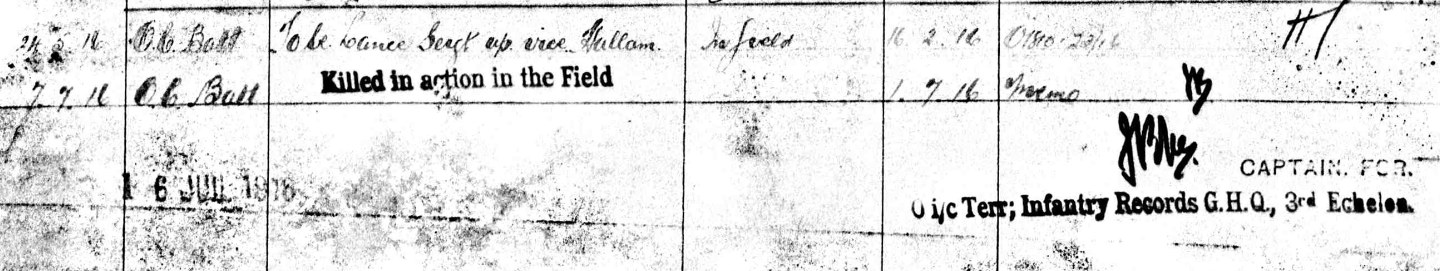 24 2 16 O.C. Batt To be Lance Sergt vice Hallam. In field 16 2 16
Killed in action in the Field
7 7 16 O.C. Batt 1 7 16 Memo
CAPTAIN. FOR.
16 JUL 1916
O i/c Terr; Infantry Records G.H.Q., 3rd Echelon.